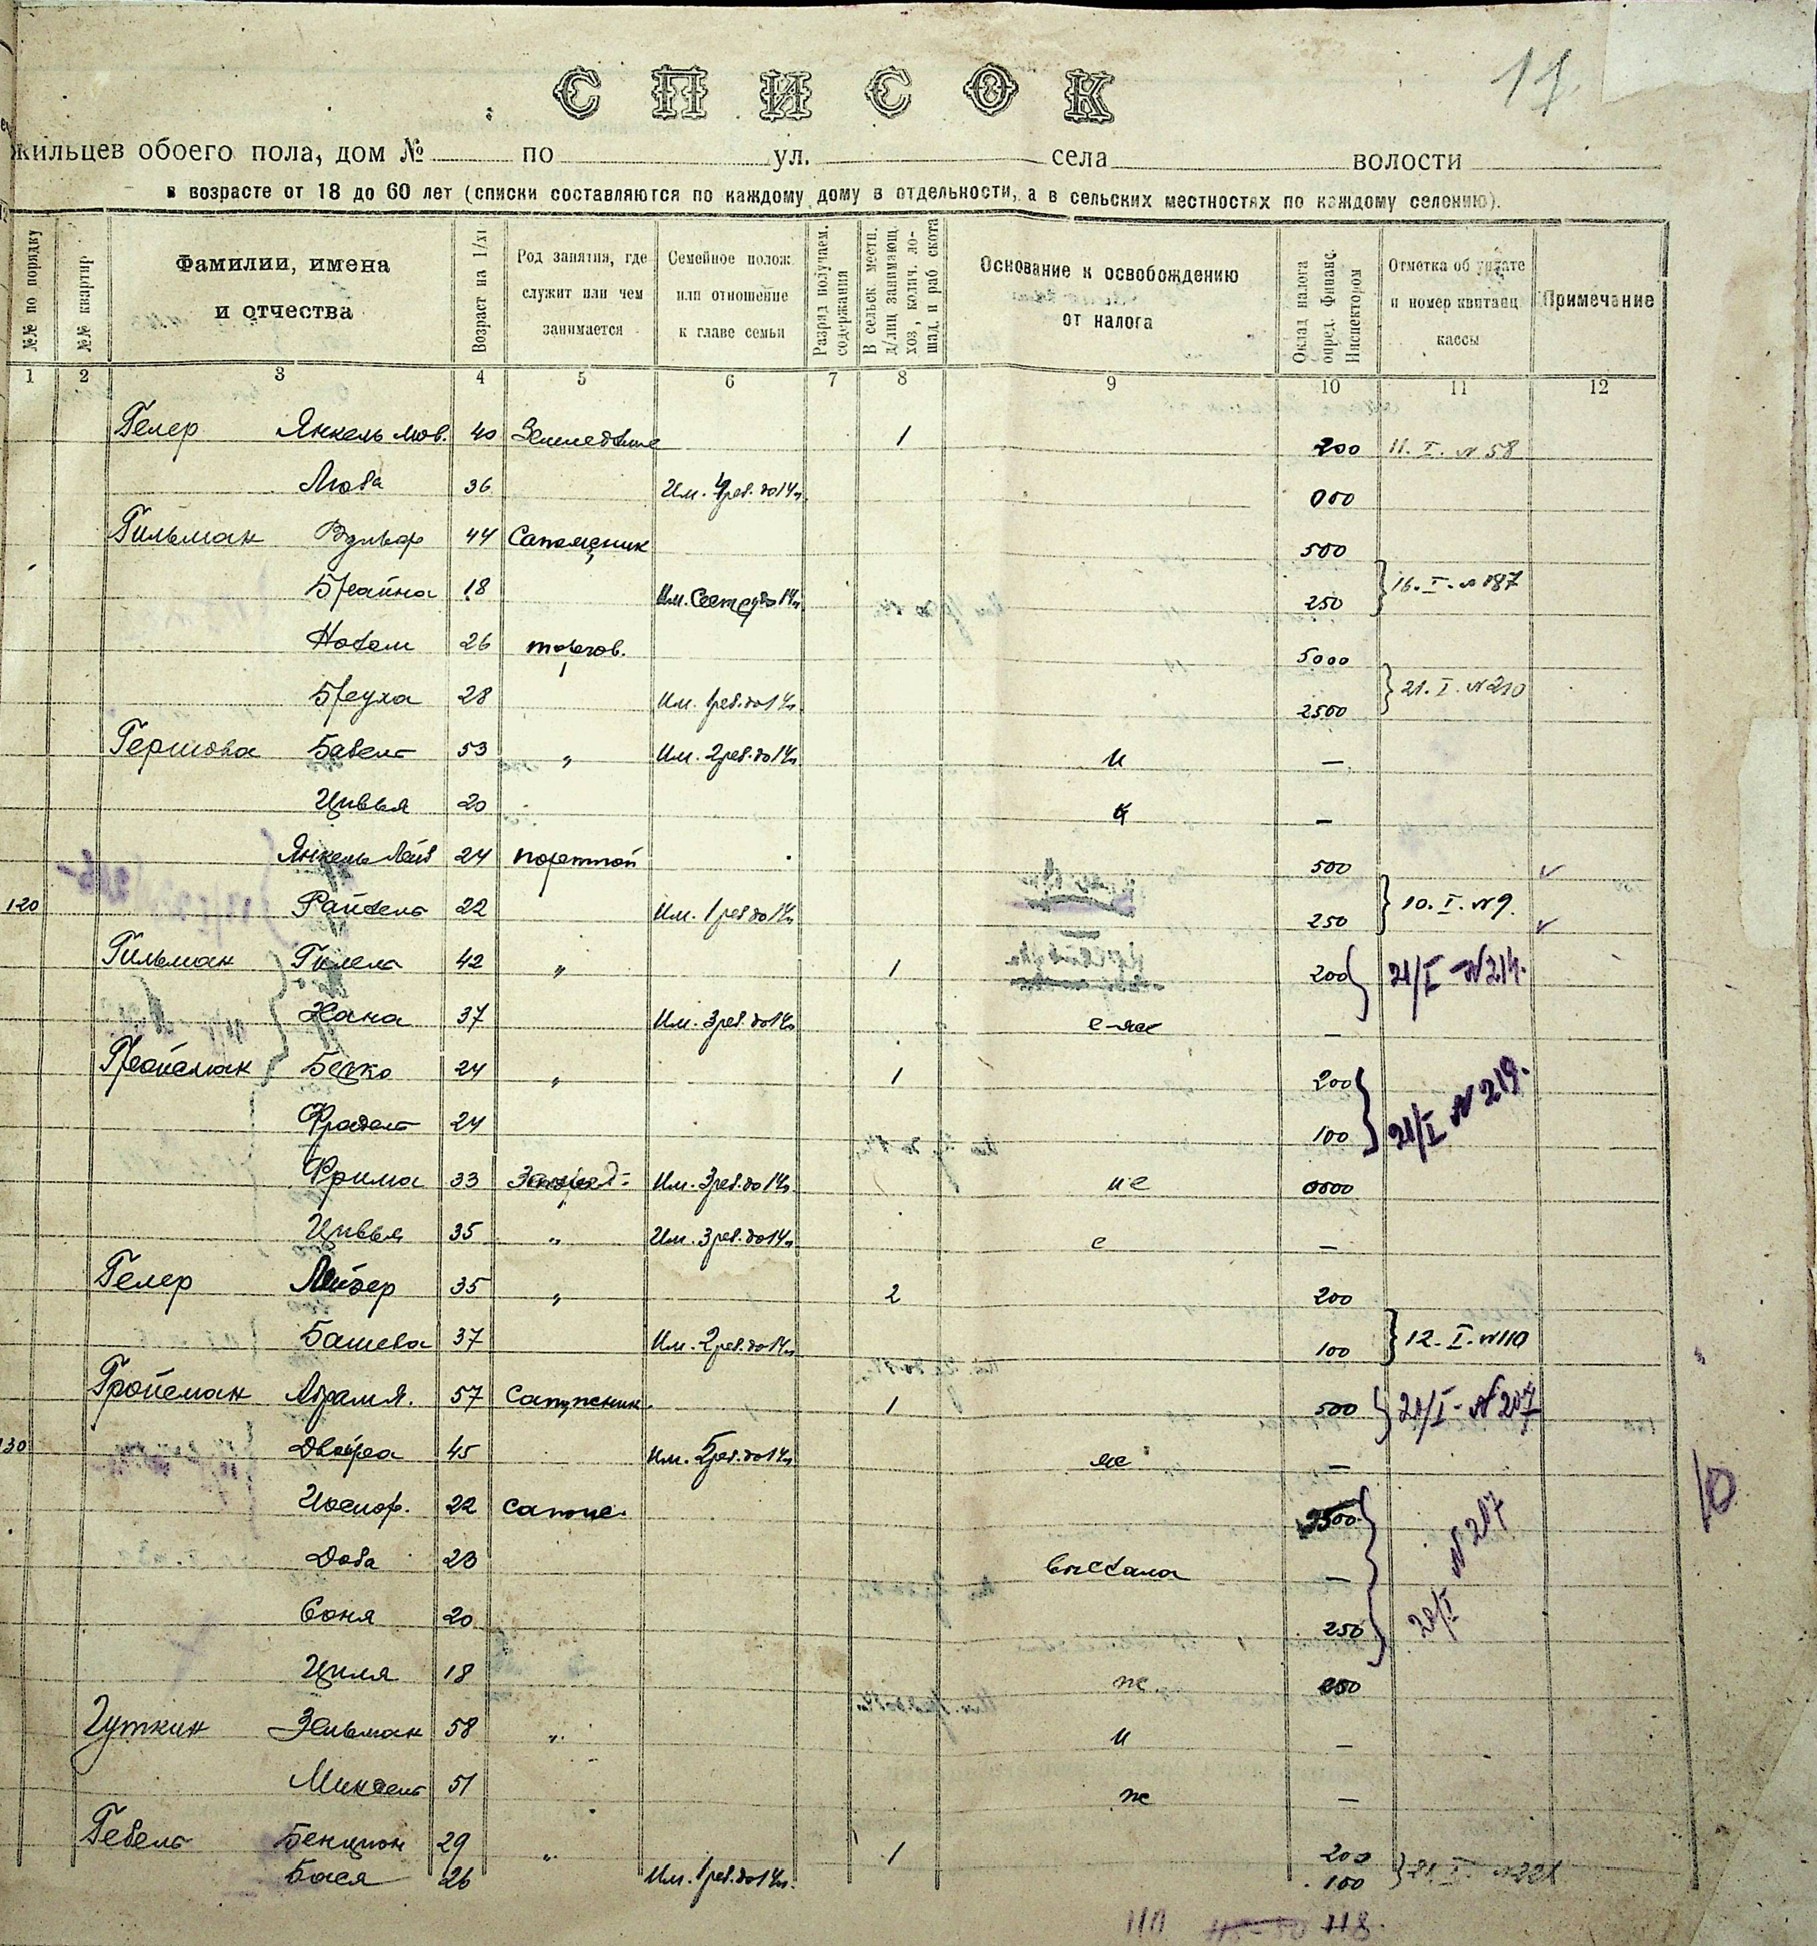 11
СПИСОК
жильцев обоего пола, дом № по ул. села волости
в возрасте от 18 до 60 лет (списки составляются по каждому дому в отдельности, а в сельских местностях по каждому селению).
№№ по порядку
№№ квартир
Фамилии, имена и отчества
Возраст на 1/XI
Род занятия, где служит или чем занимается
Семейное полож. или отношение к главе семьи
Разряд получаем. содержания
В сельск. местн. д/лиц занимающ. хоз., колич. лошад. и раб скота
Основание к освобождению от налога
Оклад налога опред. финанс. Инспектором
Отметка об уплате и номер квитанц. кассы
Примечание
1 2 3 4 5 6 7 8 9 10 11 12
Гелер Янкель 40 Земледелие 1 200 11. I. № 58
Люба 36 Им. 4 реб. до 14 л. 000
Гильман Вульф 44 500
Брайна 18 Им. сестру до 14 л. 250 16. I. № 187
Нохем 26 торгов. 5000
Бруха 28 Им. 1 реб. до 14 л. 2500 21. I. № 210
Гершова 53 " Им. 2 реб. до 14 л. и —
Цивья 20 —
Янкель Лейб 24 портной 500
120 Райхель 22 Им. 1 реб. до 14 л. 250 10. I. № 9.
Гильман Гилель 42 " 1 200 21/I - № 214.
Хана 37 Им. 3 реб. до 14 л. —
Гройсман Берко 24 " 1 200
Фрадель 24 100 21/I № 219.
Фрима 33 Им. 3 реб. до 14 л.
Цивья 35 " Им. 3 реб. до 14 л. е —
Гелер Лейзер 35 " 2 200
Башева 37 Им. 2 реб. до 14 л. 100 12. I. № 110
Гройсман Абрам Я. 57 Сапужник. 1 500 21/I - № 207
130 Двойра 45 Им. 5 реб. до 14 л. —
Иосиф. 22 сапож.
Доба 23 выехала —
Соня 20 250 21/I № 217
Циля 18 250
Гуткин Зельман 58 " и —
51 —
Гебель Бенцион 29 " 1 200
Бася 26 Им. 1 реб. до 14 л. 100 21. I. № 221
10
118